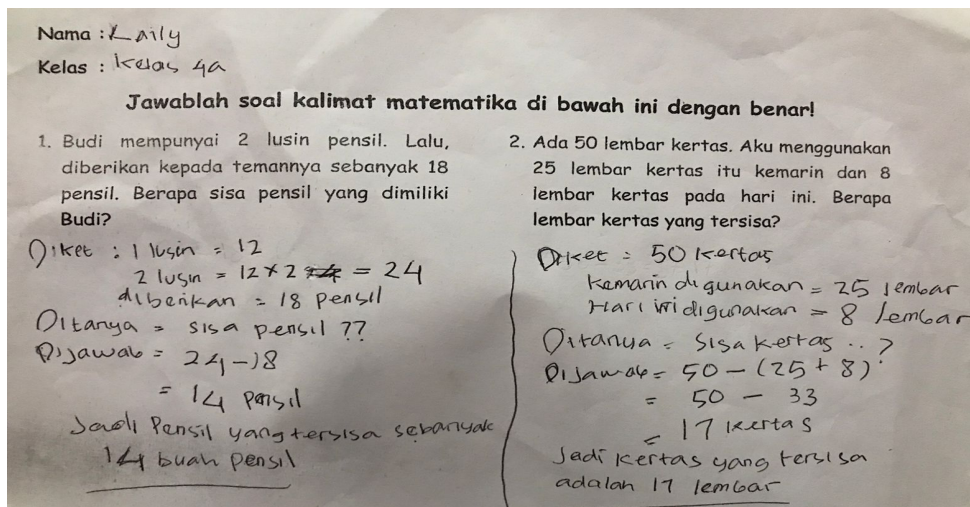 Nama : Laily
Kelas : kelas 4a
Jawablah soal kalimat matematika di bawah ini dengan benar!
1. Budi mempunyai 2 lusin pensil. Lalu,
diberikan kepada temannya sebanyak 18
pensil. Berapa sisa pensil yang dimiliki
Budi?
Diket : 1 lusin = 12
2 lusin = 12 x 2 = 24
diberikan = 18 pensil
Ditanya = sisa pensil ??
Dijawab = 24-18
= 14 pensil
Jadi Pensil yang tersisa sebanyak
14 buah pensil
2. Ada 50 lembar kertas. Aku menggunakan
25 lembar kertas itu kemarin dan 8
lembar kertas pada hari ini. Berapa
lembar kertas yang tersisa?
Diket = 50 kertas
Kemarin digunakan = 25 lembar
Hari ini digunakan = 8 lembar
Ditanya = Sisa kertas ..?
Dijawab = 50 - (25 + 8)
= 50 - 33
= 17 kertas
Jadi kertas yang tersisa
adalah 17 lembar